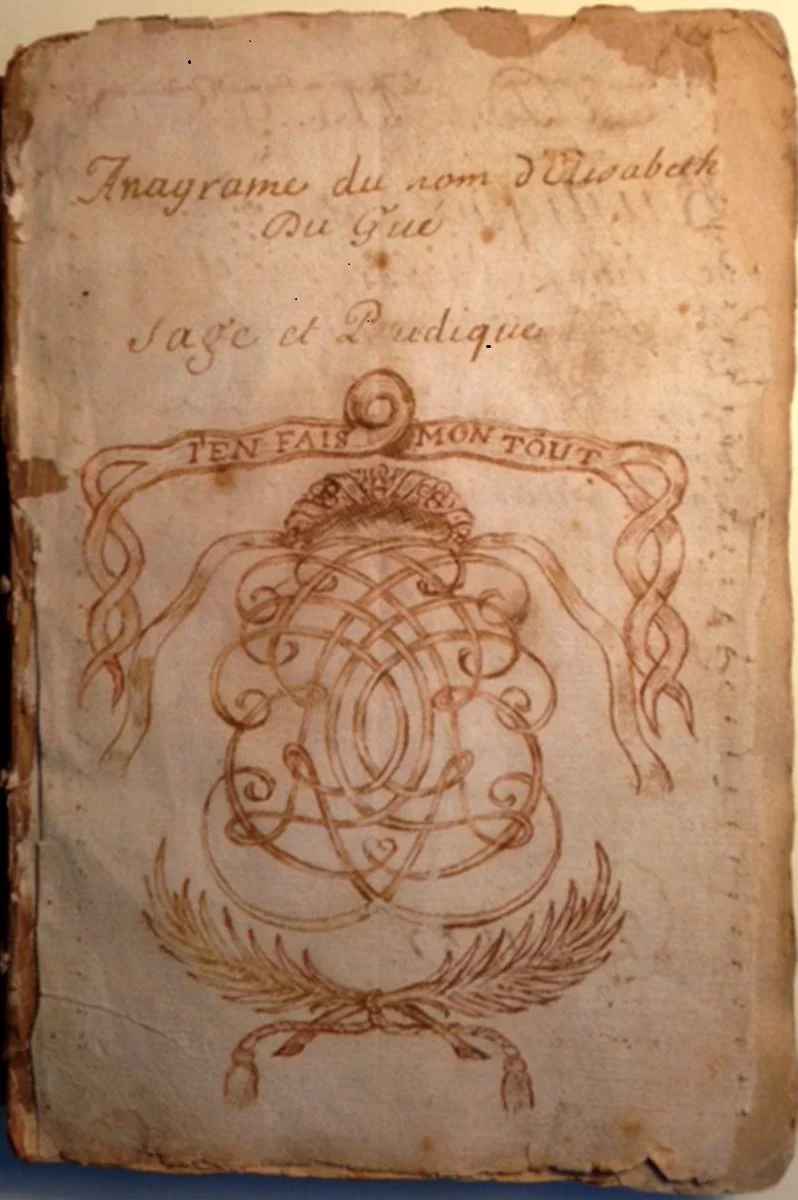 Anagrame du nom d'Elisabeth
Du Gué
Sage et Pudique
J'EN FAIS MON TOUT